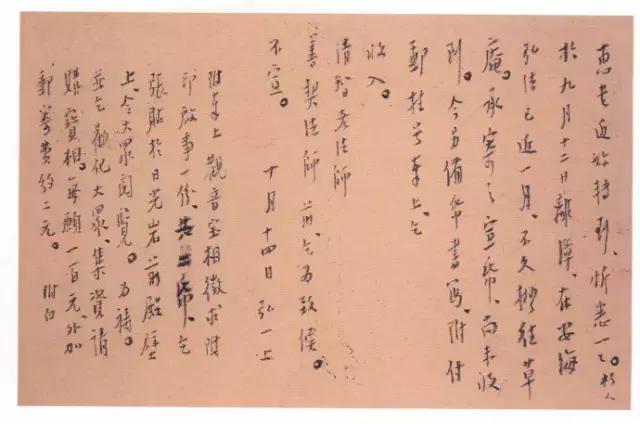 惠書近始轉到、忻悉一一。朽人
於九月十二日離漳、在安海
弘法已近一月、不久擬往草
庵。承寄之宣紙、尚未收
到。今另備紙書寫、附付
郵挂号奉上、乞
收入。
清智老法師
善契法師 前、乞为致候。
不宣。 十月十四日 弘一上
附奉上觀音宝相徵求附
印啟事一份、共二紙、乞
張貼於日光岩前殿壁
上、令大眾閱覽。为禱。
並乞勸化大眾、集資請
購寶相。每願一百元、外加
郵寄費約二元。 附白